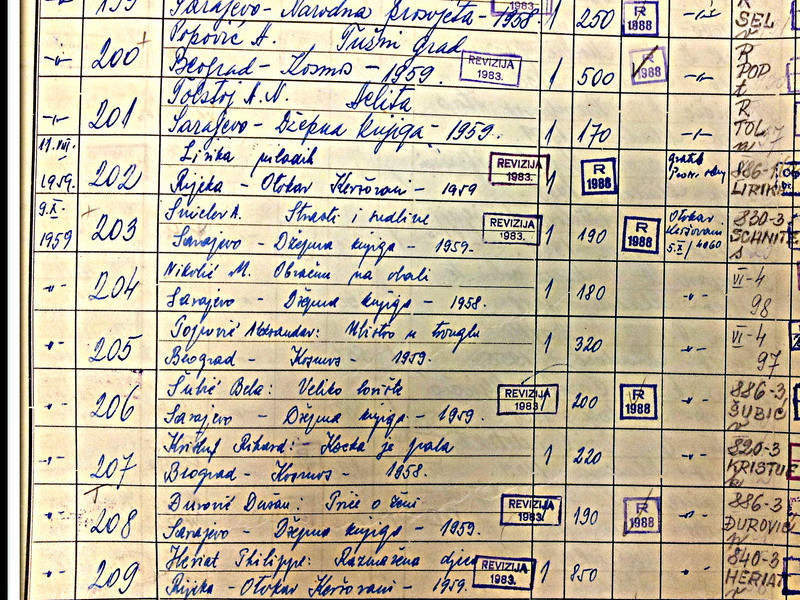 199 Sarajevo - Narodna prosvjeta - 1958 1983. 1 250 R 1988 -"- R SEL
-"- 200 Popović A. Tušni grad R
Beograd - Kosmos - 1959. REVIZIJA 1983. 1 500 R 1988 -"- POD
-"- 201 Tolstoj A. N. Aelita R
Sarajevo - Džepna knjiga - 1959. 1 170 -"- TOL
11.VIII. 1959. 202 Lirika mladih REVIZIJA 1983. gratis 886-1
Rijeka - Otokar Keršovani - 1959 1 R 1988 LIRIK
9.X. 1959 203 Šnicler A. Strasti i sudbine REVIZIJA 1983. Otokar Keršovani 830-3
Sarajevo - Džepna knjiga - 1959. 1 190 R 1988 5.X/4060 SCHNITZ
-"- 204 Nikolić M. Obračun na obali VI-4
Sarajevo - Džepna knjiga - 1958. 1 180 -"- 98
-"- 205 Aleksandar: u VI-4
Beograd - Kosmos - 1959. 1 320 -"- 97
-"- 206 Šubić Bela: Veliko REVIZIJA 1983. 886-3
Sarajevo - Džepna knjiga - 1959 1 200 R 1988 -"- ŠUBIĆ
-"- 207 Rikard: Kocka je pala 820-3
Beograd - Kosmos - 1958. 1 220 -"- KRISTUF
-"- 208 Đurović Dušan: Priče o ženi REVIZIJA 1983. 886-3
Sarajevo - Džepna knjiga - 1959. 1 190 R 1988 -"- ĐUROVIĆ
-"- 209 Heriat Philippe: Razmažena djeca REVIZIJA 1983. 840-3
Rijeka - Otokar Keršovani - 1959. 1 850 -"- HERIAT